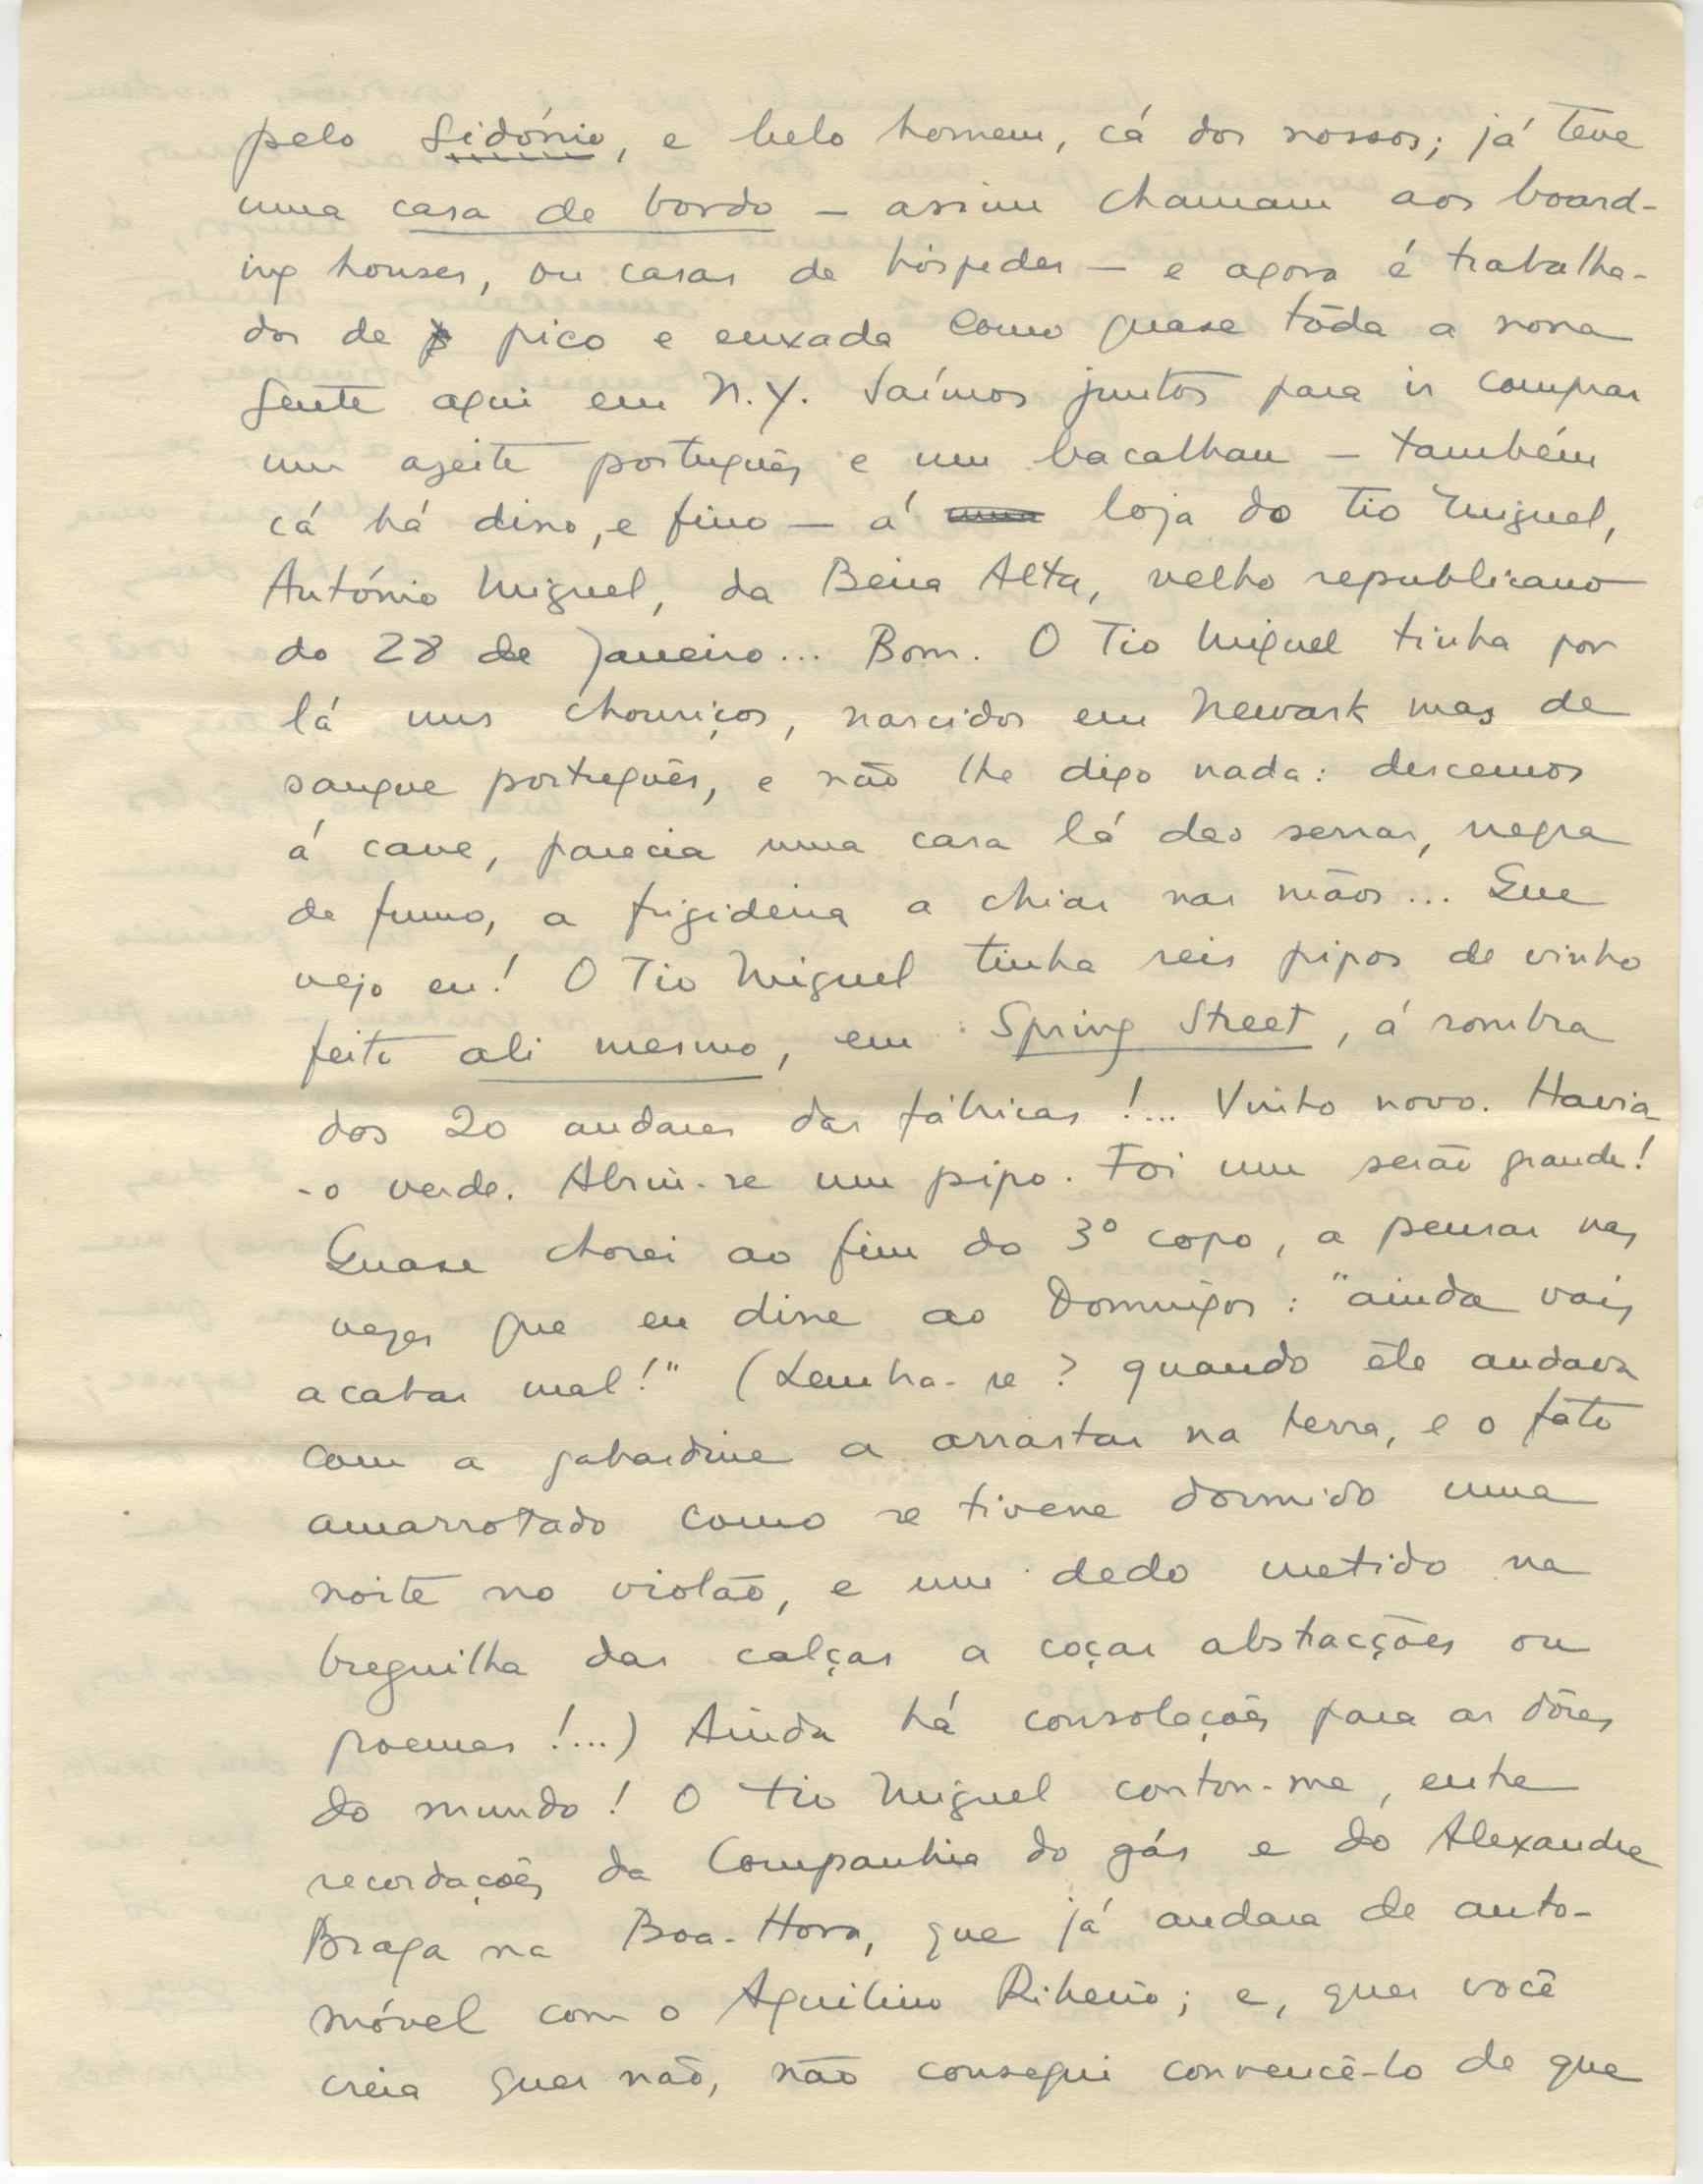 pelo Sidónio, e belo homem, cá dos nossos; já teve
uma casa de bordo — assim chamam aos board-
ing houses, ou casas de hóspedes — e agora é trabalha-
dor de pico e enxada como quase tôda a nossa
gente aqui em N.Y. Saímos juntos para ir comprar
um azeite português e um bacalhau — também
cá há disso, e fino — á loja do Tio Miguel,
António Miguel, da Beira Alta, velho republicano
do 28 de Janeiro... Bom. O Tio Miguel tinha por
lá uns chouriços, nascidos em Newark mas de
sangue português, e não lhe digo nada: descemos
á cave, parecia uma casa lá das serras, negra
de fumo, a frigideira a chiar nas mãos... Que
vejo eu! O Tio Miguel tinha seis pipos de vinho
feito ali mesmo, em Spring Street, á sombra
dos 20 andares das fábricas!... Vinho novo. Havia
-o verde. Abriu-se um pipo. Foi um serão grande!
Quase chorei ao fim do 3º copo, a pensar nas
vezes que eu disse ao Domingos: "ainda vais
acabar mal!" (Lembra-se? quando êle andava
com a gabardine a arrastar na terra, e o fato
amarrotado como se tivesse dormido uma
noite no violão, e um dedo metido na
breguilha das calças a coçar abstracções ou
poemas!...) Ainda há consolações para as dôres
do mundo! O Tio Miguel contou-me, entre
recordações da Companhia do gás e do Alexandre
Braga na Boa-Hora, que já andara de auto-
móvel com o Aquilino Ribeiro; e, quer você
creia quer não, não consegui convencê-lo de que